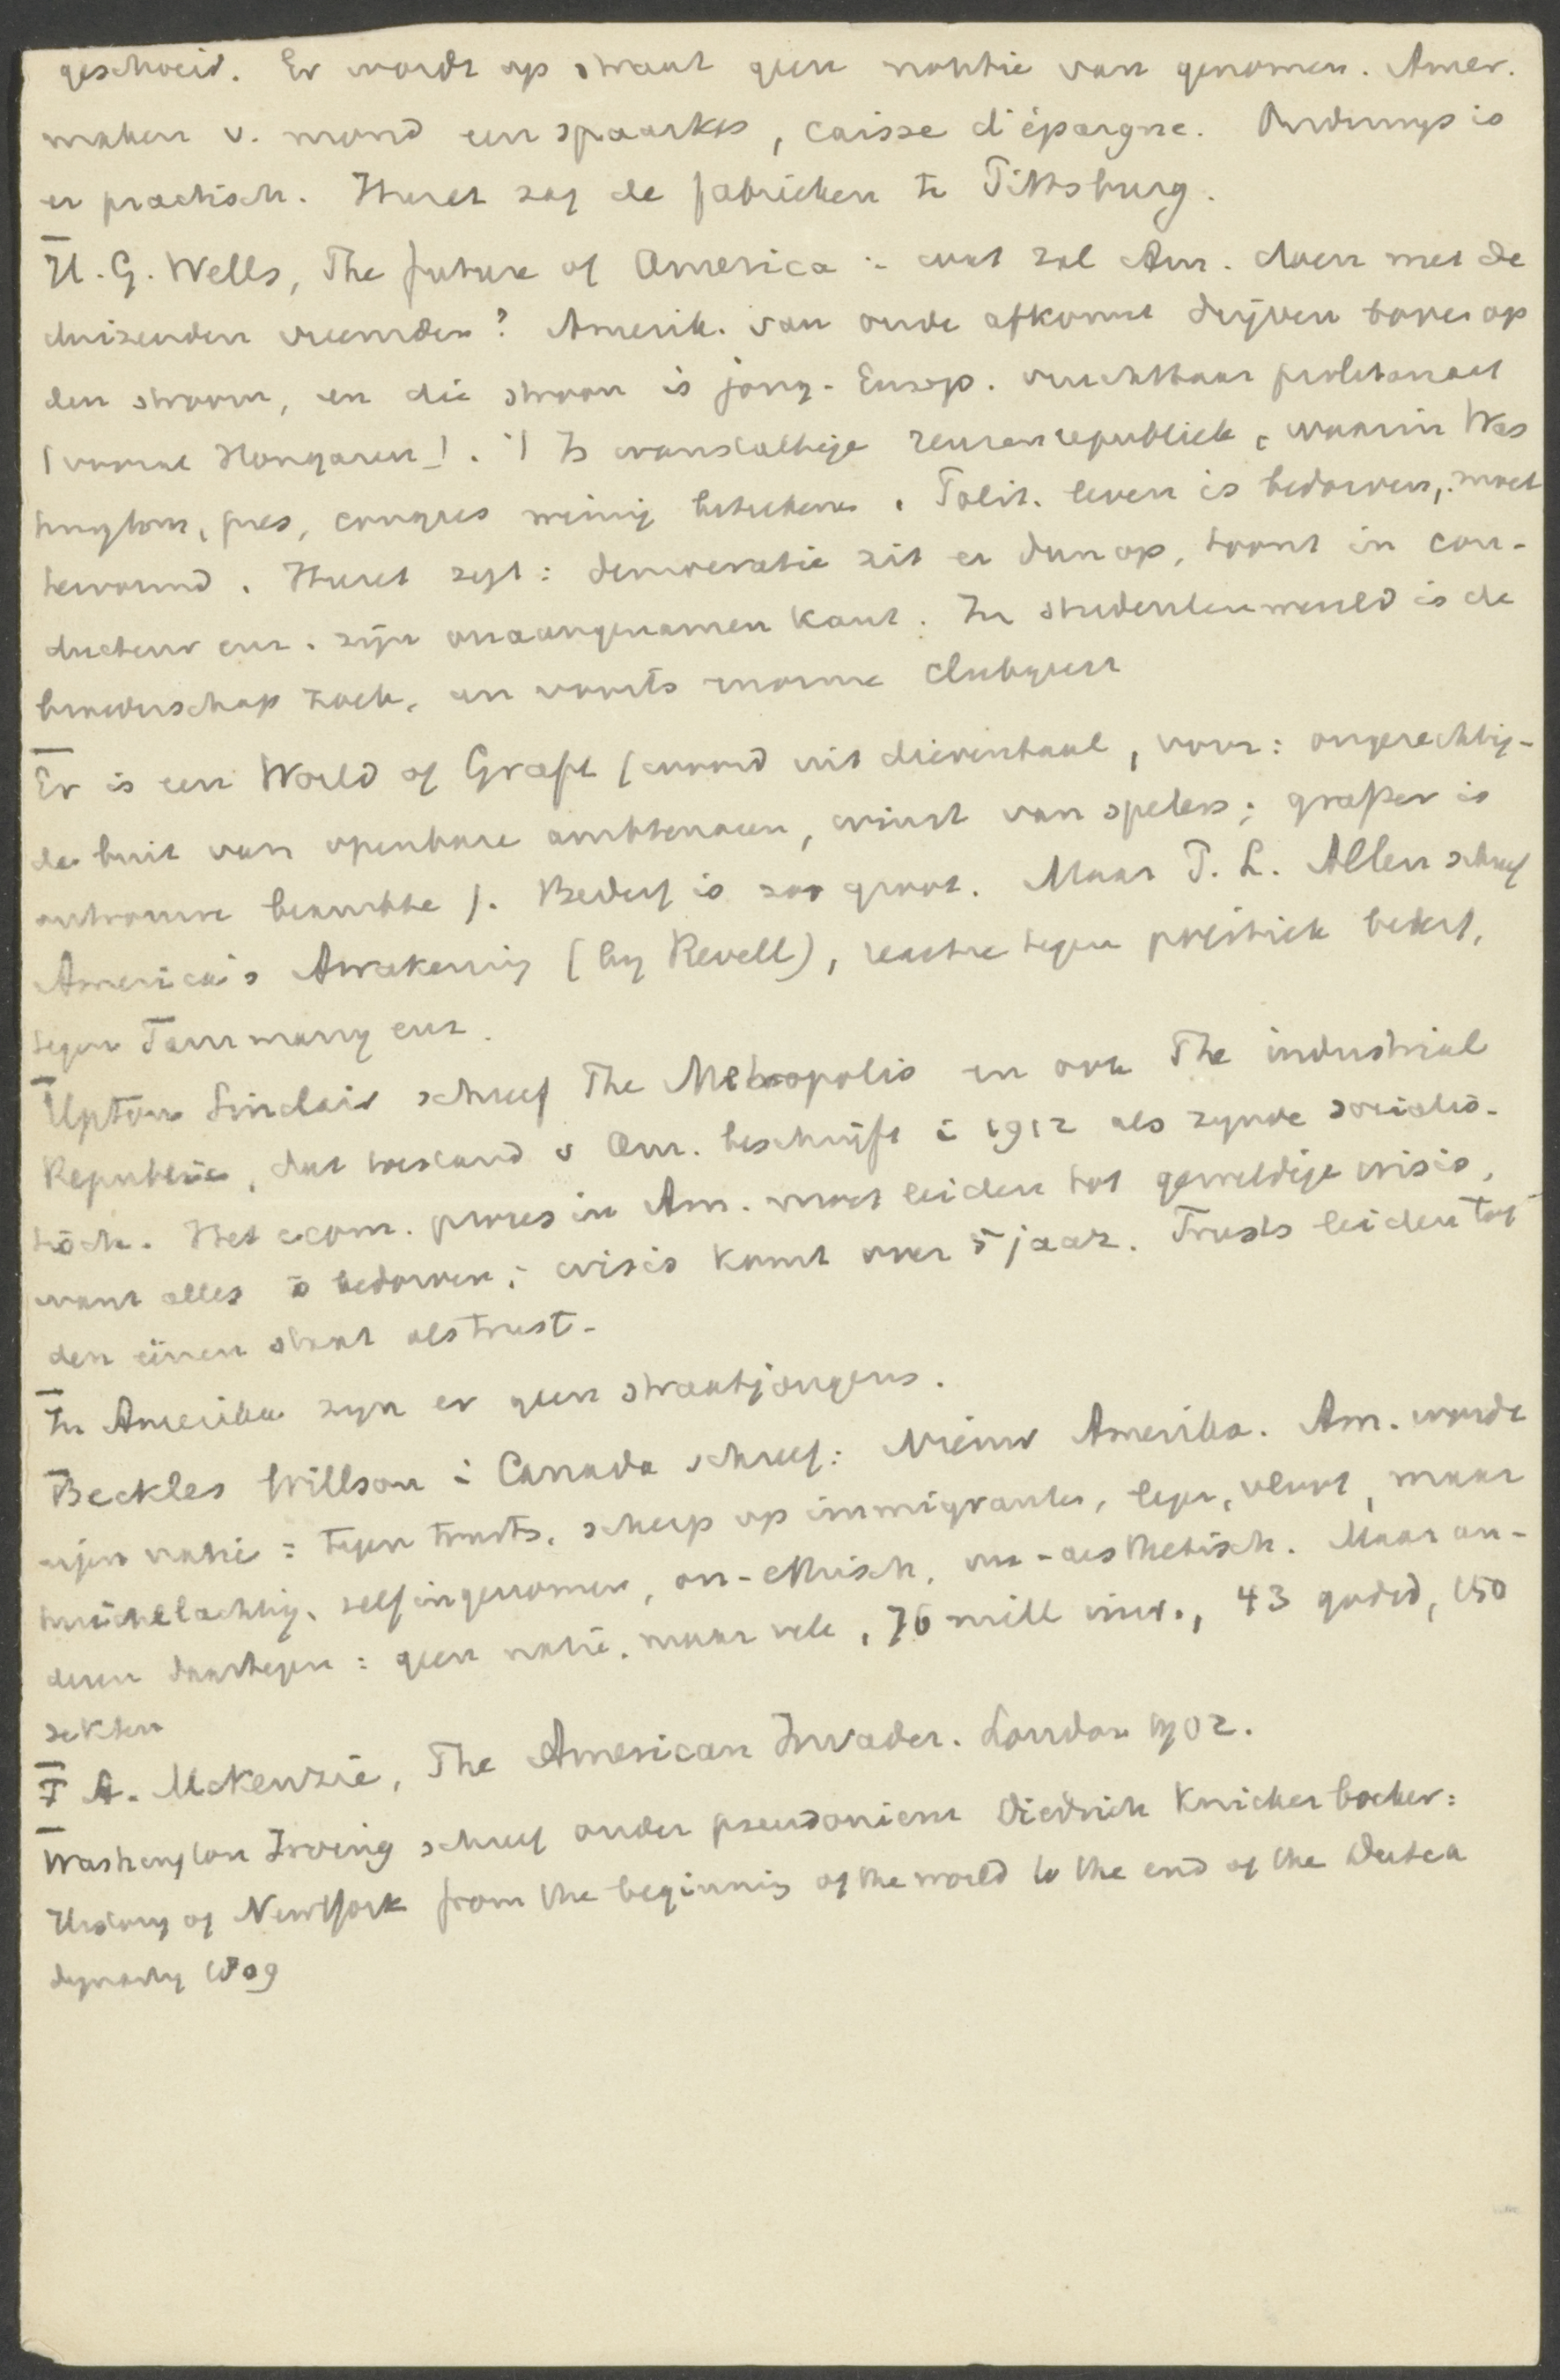 geschoeid. Er wordt op straat geen notitie van genomen. Amer.
maken v. mond een spaarkas, caisse d'épargne. Onderwijs is
er practisch. Huret zag de fabrieken te Pittsburg.
H. G. Wells, The future of America :- wat zal Am. doen met de
duizenden vreemden? Amerik. van oude afkomst drijven boven op
den stroom, en die stroom is jong-Europ. vruchtbaar proletariaat
(vooral Hongaren!). 't Is wanstaltige reuzenrepubliek, waarin Was
hington, pres, congres weinig beteekenen. Polit. leven is bedorven, moet
hervormd. Huret zegt: democratie zit er dun op, toont in con-
ducteur enz. zijn onaangenamen kant. In studentenwereld is de
broederschap zoek, en voorts enorme clubgeest
Er is een World of Graft (woord uit dieventaal, voor: ongerechtig-
de buit van openbare ambtenaren, winst van spelers; grafter is
ontrouwe beambte). Bederf is zoo groot. Maar T. L. Allen schreef
America's Awakening (by Revell), reactie tegen politiek bederf,
tegen Tammany enz.
Upton Sinclair schreef The Metropolis en ook The industrial
Republic, dat toestand v Am. beschrijft i 1912 als zijnde socialis-
tisch. Het econ. proces in Am. moet leiden tot geweldige crisis,
want alles is bedorven; crisis komt over 5 jaar. Trusts leiden tot
den éénen staat als trust.
In Amerika zijn er geen straatjongens.
Beckles Willson i Canada schreef: Nieuw Amerika. Am. wordt
eigen natie: tegen trusts, scherp op immigranten, leger, vloot, maar
huichelachtig, zelfingenomen, on-ethisch, on-aesthetisch. Maar an-
deren daartegen: geen natie, maar vele, 76 mill inw., 43 godsd, 150
sekten
F A. McKenzie, The American Invader. London 1902.
Washington Irving schreef onder pseudoniem Diedrich Knickerbocker:
History of New York from the beginning of the world to the end of the Dutch
dynasty 1809